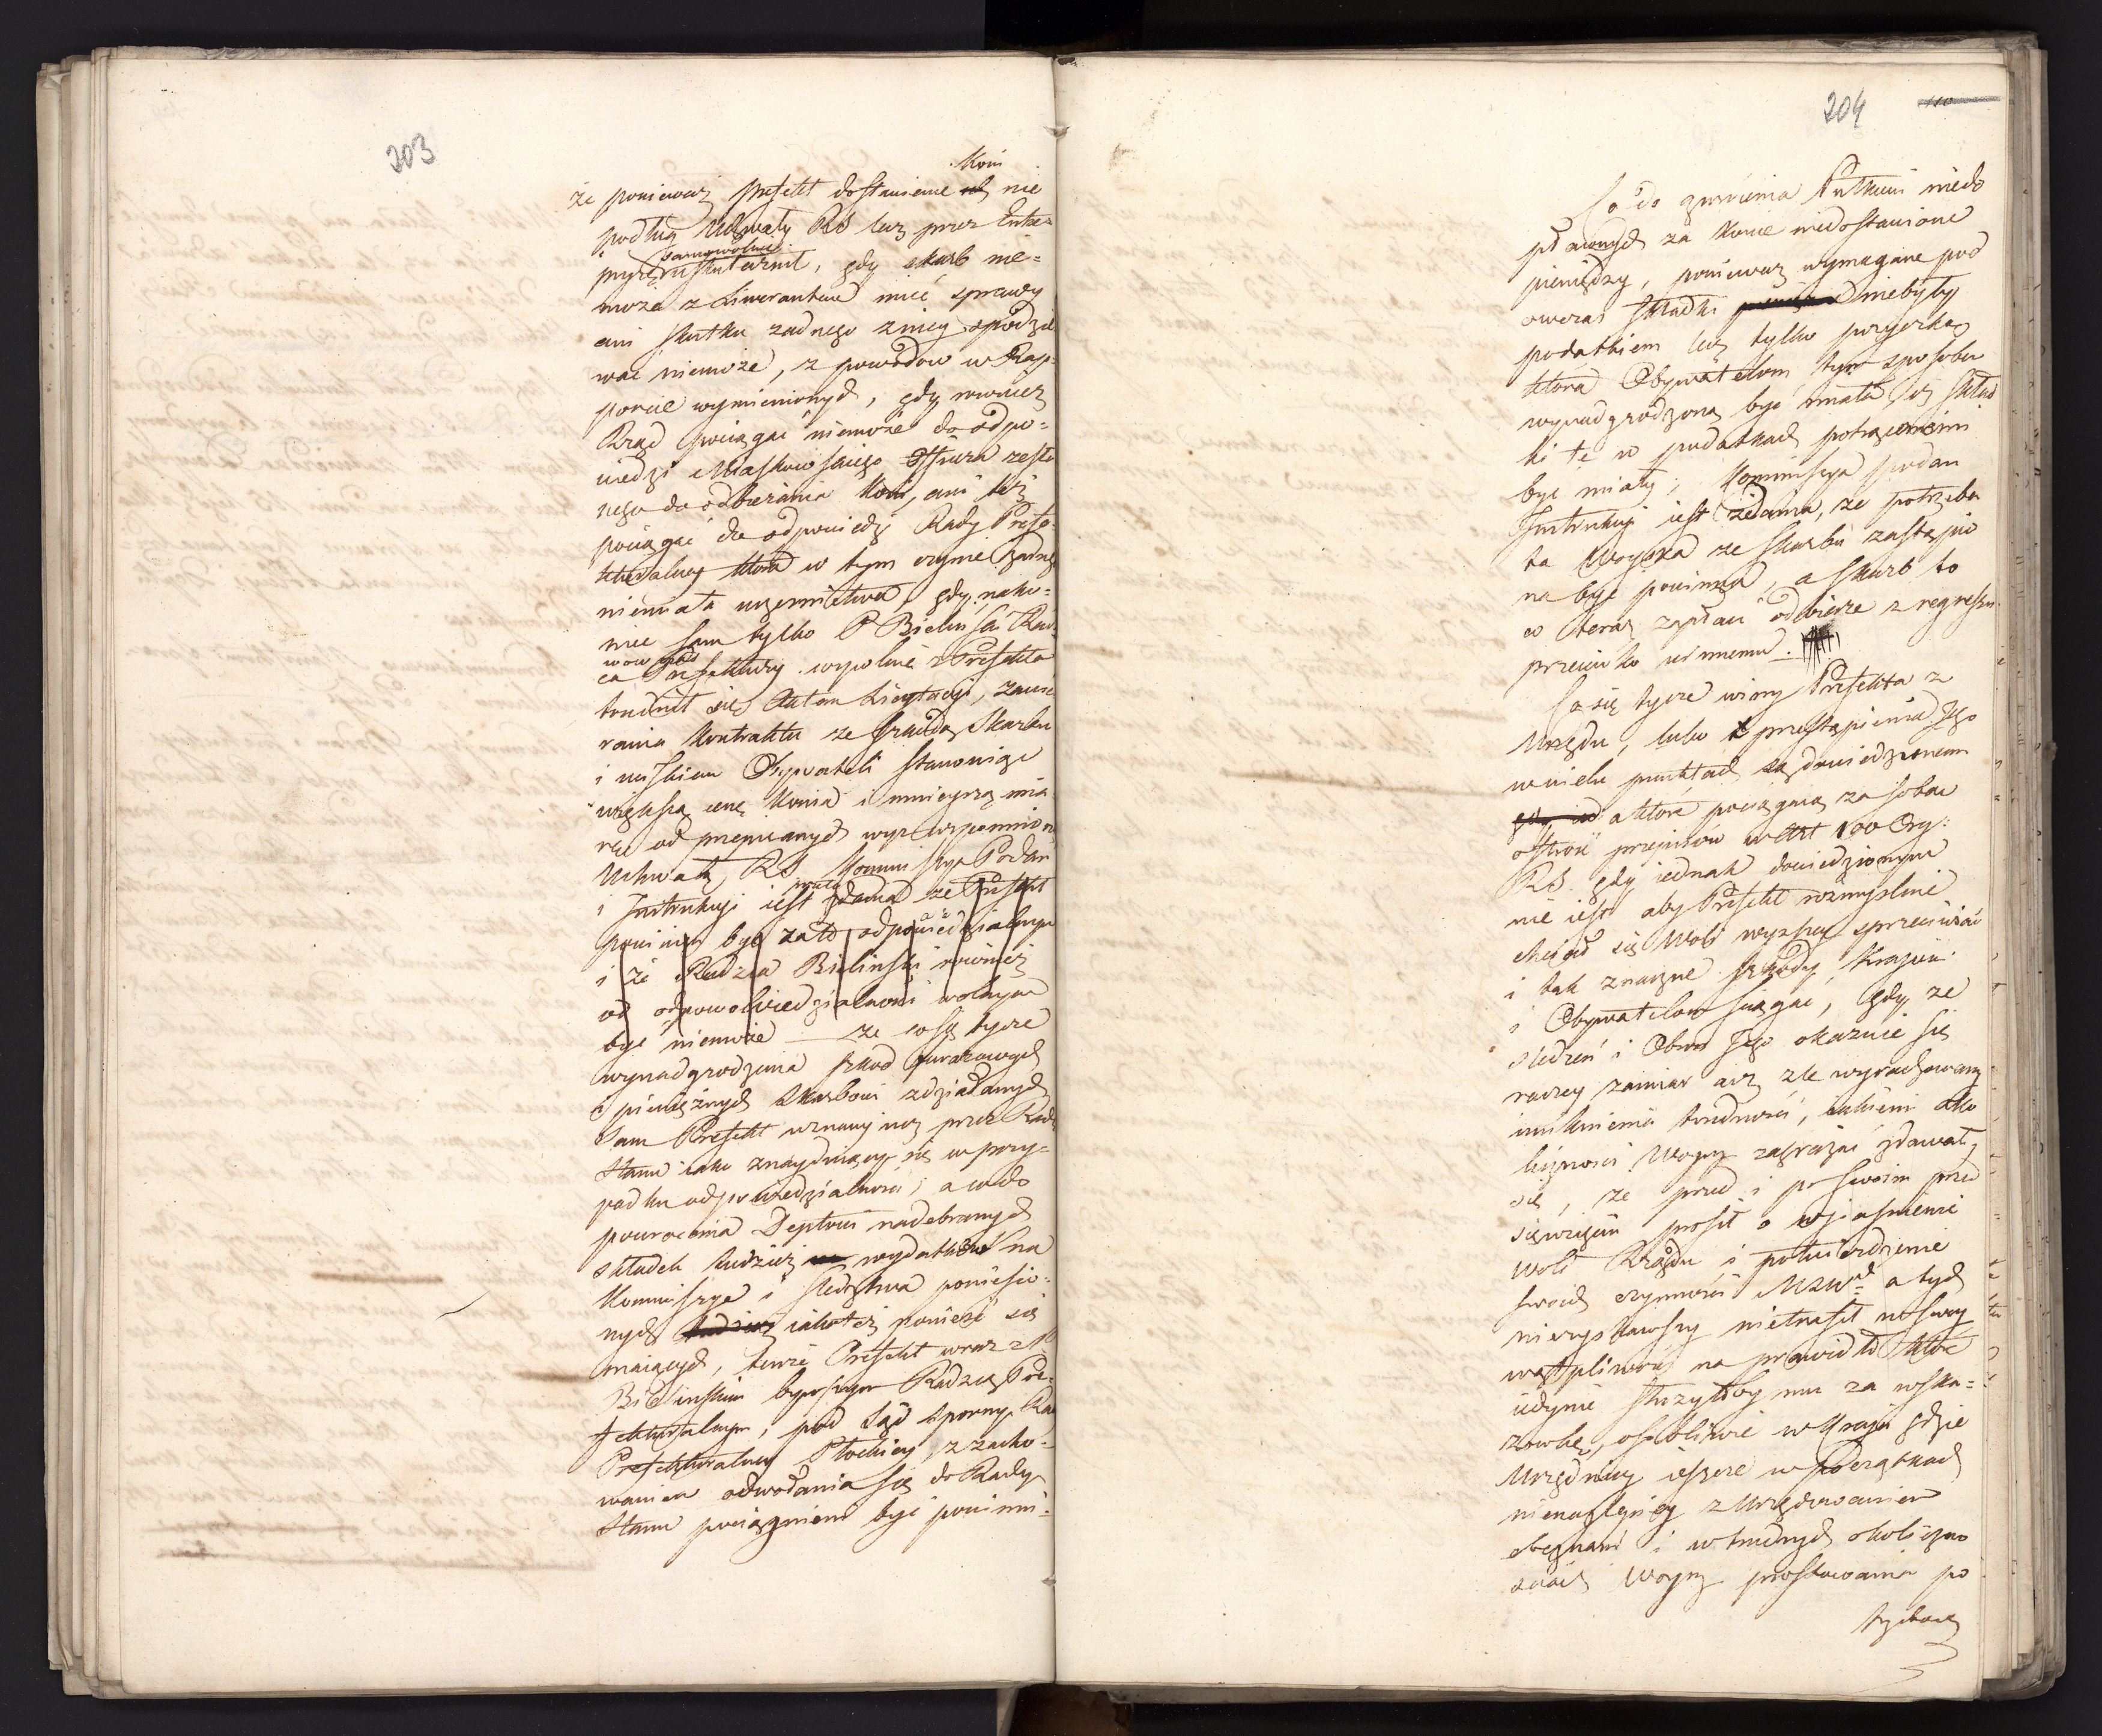 203
Koni
że ponieważ Prefekt dostawienie nie
podług Uchwały RS lecz przez Entre=
samowolnie
pryzę uskutecznił, gdy skarb nie=
może z Liwerantem mieć sprawy
ani skutku żadnego z niey spodzie
wać niemoże, z powodów w Rap=
porcie wymienionych, gdy rownież
Rząd pociągać niemoże do odpo=
wiedzi Officera zesła
nego do odbierania Koni, ani też
pociągać do odpowiedzi Rady Prefe=
kturalney która w tym czynie żadnego
niemiała uczestnictwa, gdy nako=
niec sam tylko P Bielinski Rad
ca Prefektury wspolnie z Prefekta
trudnił się Aktem Licytacyi, zawie
rania Kontraktu ze szkodą Skarbu
i uciskiem Obywateli stanowiąc
większą cenę Konia i mnieyszą mia
rę od przepisanych wyż wspomnioną
Uchwałą RS Kommissya Podań
i Instrukcyi iest zdania że Prefekt
powinien być za to odpowiedzialnym
i że Radzca Bielinski rownież
od odpowiedzialności wolnym
być niemoże — że co się tycze
wynadgrodzenia szkod
i pieniężnych Skarbowi zdziałanych
Sam Prefekt uznany iuż przez Radę
Stanu iako znayduiący się w przy=
padku odpowiedzialności, a co do
powrócenia Deptuni nadebranych
składek tudzież wydatków na
Kommissye i śledztwa poniesio=
nych iakoteż ponieść się
maiących, tenże Prefekt wraz z P.
Bielinskim bywszym Radzcą Pre=
fekturalnym, pod Sąd sporny Rady
Prefekturalney Płockiey, z zacho=
waniem odwołania się do Rady
Stanu pociągnieni być powinni=
204
Co do zwrócenia niedo
płaconych za Konie niedostawione
pieniędzy, ponieważ wymagane pod
owczas składki niebyły
podatkiem lecz tylko pożyczką
która Obywatelom tym sposobem
wynadgrodzoną być miała, iż skład
ki te w podatkach potrąconemi
być miały; Kommissya podan
Instrukcyi iest zdania, że potrzeba
ta Woyska ze Skarbu zastąpio
na być powinna, a Skarb to
co teraz zapłaci odbierze z regressu
przeciwko winnemu.
Co się tycze winy Prefekta z
Urzędu, lubo przestąpienia Jego
w wielu punktach są dowiedzionem
a które pociągaią za sobą
ostrość przepisów w Art 100 Org:
RS. gdy iednak dowiedzionym
nie iest aby Prefekt rozmyślnie
chciał się Woli wyższey sprzeciwiać
i tak znaczne szkody Kraiowi
i Obywatelom sciągać, gdy ze
śledzeń i Obron Jego okazuie się
raczey zamiar acz źle wyrachowany
uniknienia trudności, iakiemi oko
liczności Woyny zagrażać zdawały
się, że przed i po swoim przed
sięwzięciu prosił o obiaśnienie
Woli Rządu i potwierdzenie
swoich czynności MSW a tych
nieuzyskawszy nietrafił w swey
wątpliwości na prawidło które
iedynie służyłoby mu za wska=
zowkę, osobliwie w Kraju gdzie
Urzędnicy ieszcze w początkach
nienależycie z Urzędowaniem
obeznani i w trudnych okoliczno
ściach Woyny postawieni po
trzebuią